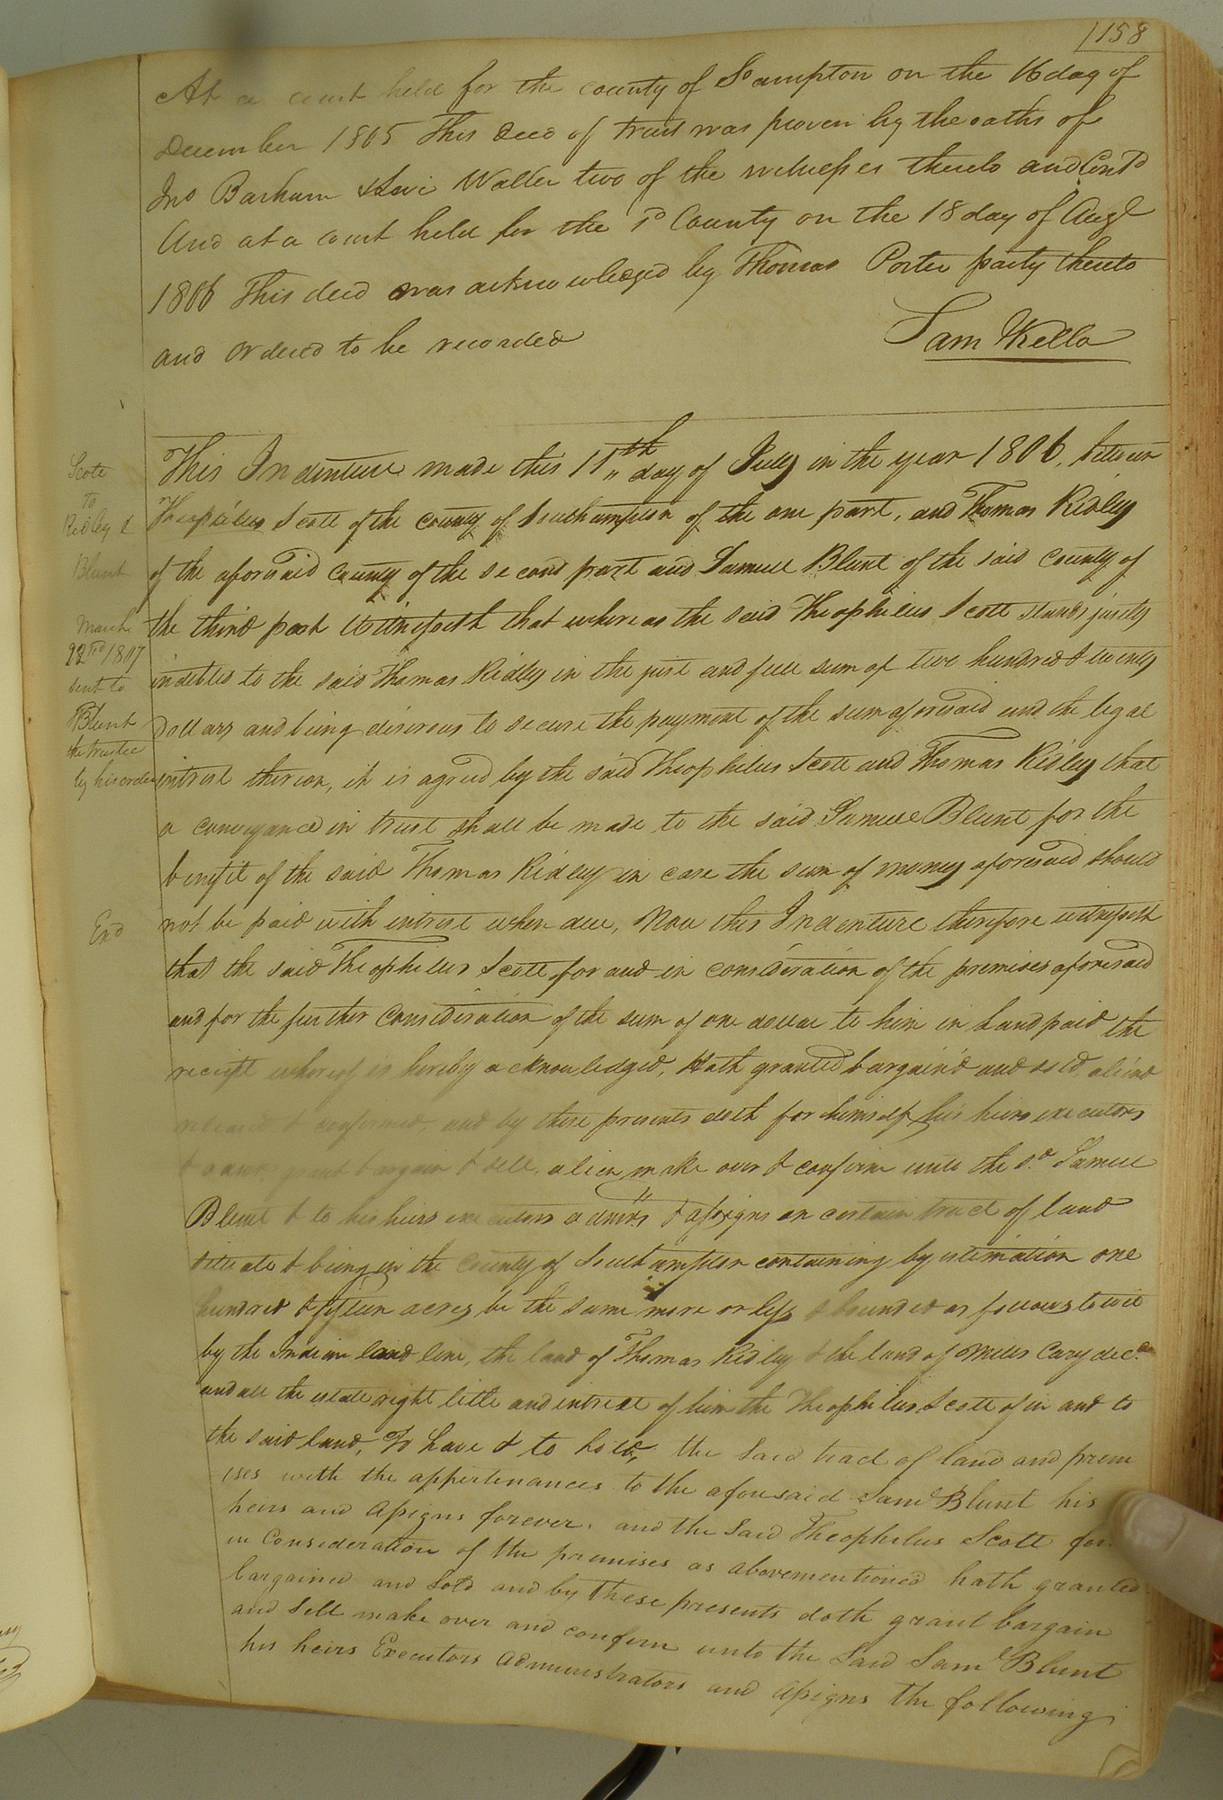 158
At a court held for the county of Soampton on the 16 day of
December 1805 This deed of trust was proven by the oaths of
Jno Barham & Levi Waller two of the witnesses thereto and Contd
And at a court held for the sd County on the 18 day of Augt
1806 This deed was acknowledged by Thomas Porter party thereto
and ordered to be recorded
Sam Kello
This Indenture made this 11th day of July in the year 1806, between
Theophilus Scott of the county of Southampton of the one part, and Thomas Ridley
of the aforesaid County of the second part and Samuel Blunt of the said County of
the third part Witnesseth that whereas the said Theophilus Scott stands justly
indebted to the said Thomas Ridley in the just and full sum of two hundred & twenty
Dollars and being desirous to secure the payment of the sum aforesaid and the legal
intrest thereon, it is agreed by the said Theophilus Scott and Thomas Ridley that
a conveyance in trust shall be made to the said Samuel Blunt for the
benefit of the said Thomas Ridley in case the sum of money aforesaid should
not be paid with intrest when due, Now this Indenture therefore witnesseth
that the said Theophilus Scott for and in consideration of the premises aforesaid
and for the further Consideration of the sum of one dollar to him in hand paid the
receipt whereof is hereby acknowledged, Hath granted bargain'd and sold, alien'd
releas'd & confirmed, and by these presents doth for himself his heirs executors
& grant bargain & sell, alien make over & confirm unto the sd. Samuel
Blunt & to his heirs executors admrs & assigns on certain tract of land
situate & being in the County of Southampton containing by estimation one
hundred & fifteen acres be the same more or less & bounded as follows to wit
by the Indian land line, the land of Thomas Ridley & the land of Miles Cary decd.
and all the estate right title and intrest of him the Theophilus Scott of in and to
the said land, To have & to hold, the said tract of land and prem
ises with the appertenances to the aforesaid Saml Blunt his
heirs and assigns forever. and the said Theophilus Scott for
in Consideration of the premises as abovementioned hath granted
bargained and sold and by these presents doth grant bargain
and sell make over and confirm unto the said Saml Blunt
his heirs Executors administrators and assigns the following
Scott
To
Ridley &
Blunt
March
1807
sent to
Blunt
the trustee
by his order
Exd